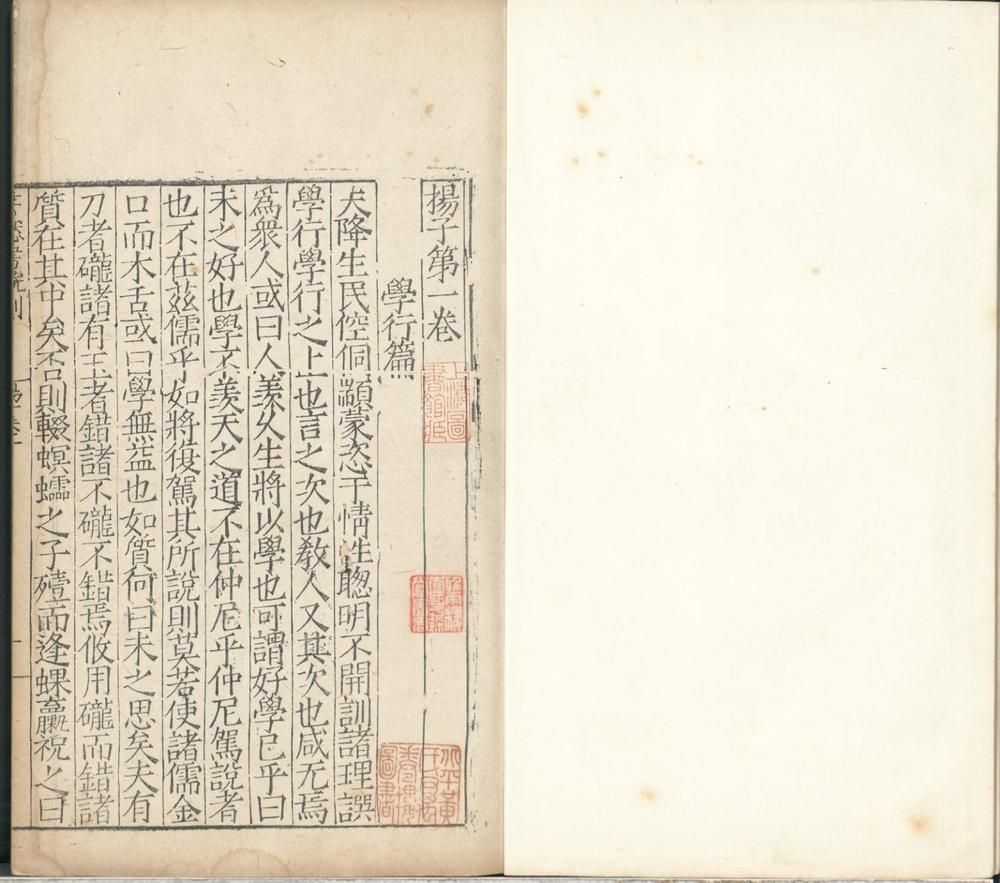 揚子第一卷
學行篇
天降生民倥侗顓蒙恣于情性聰明不開訓諸理譔
學行學行之上也言之次也教人又其次也咸无焉
爲衆人或曰人羡久生將以學也可謂好學已乎曰
未之好也學不羡天之道不在仲尼乎仲尼駕說者
也不在茲儒乎如將復駕其所說則莫若使諸儒金
口而木舌或曰學無益也如質何曰未之思矣夫有
刀者礲諸有玉者錯諸不礲不錯焉攸用礲而錯諸
質在其中矣否則輟螟蠕之子殪而逢蜾蠃祝之曰
上海圖書館藏